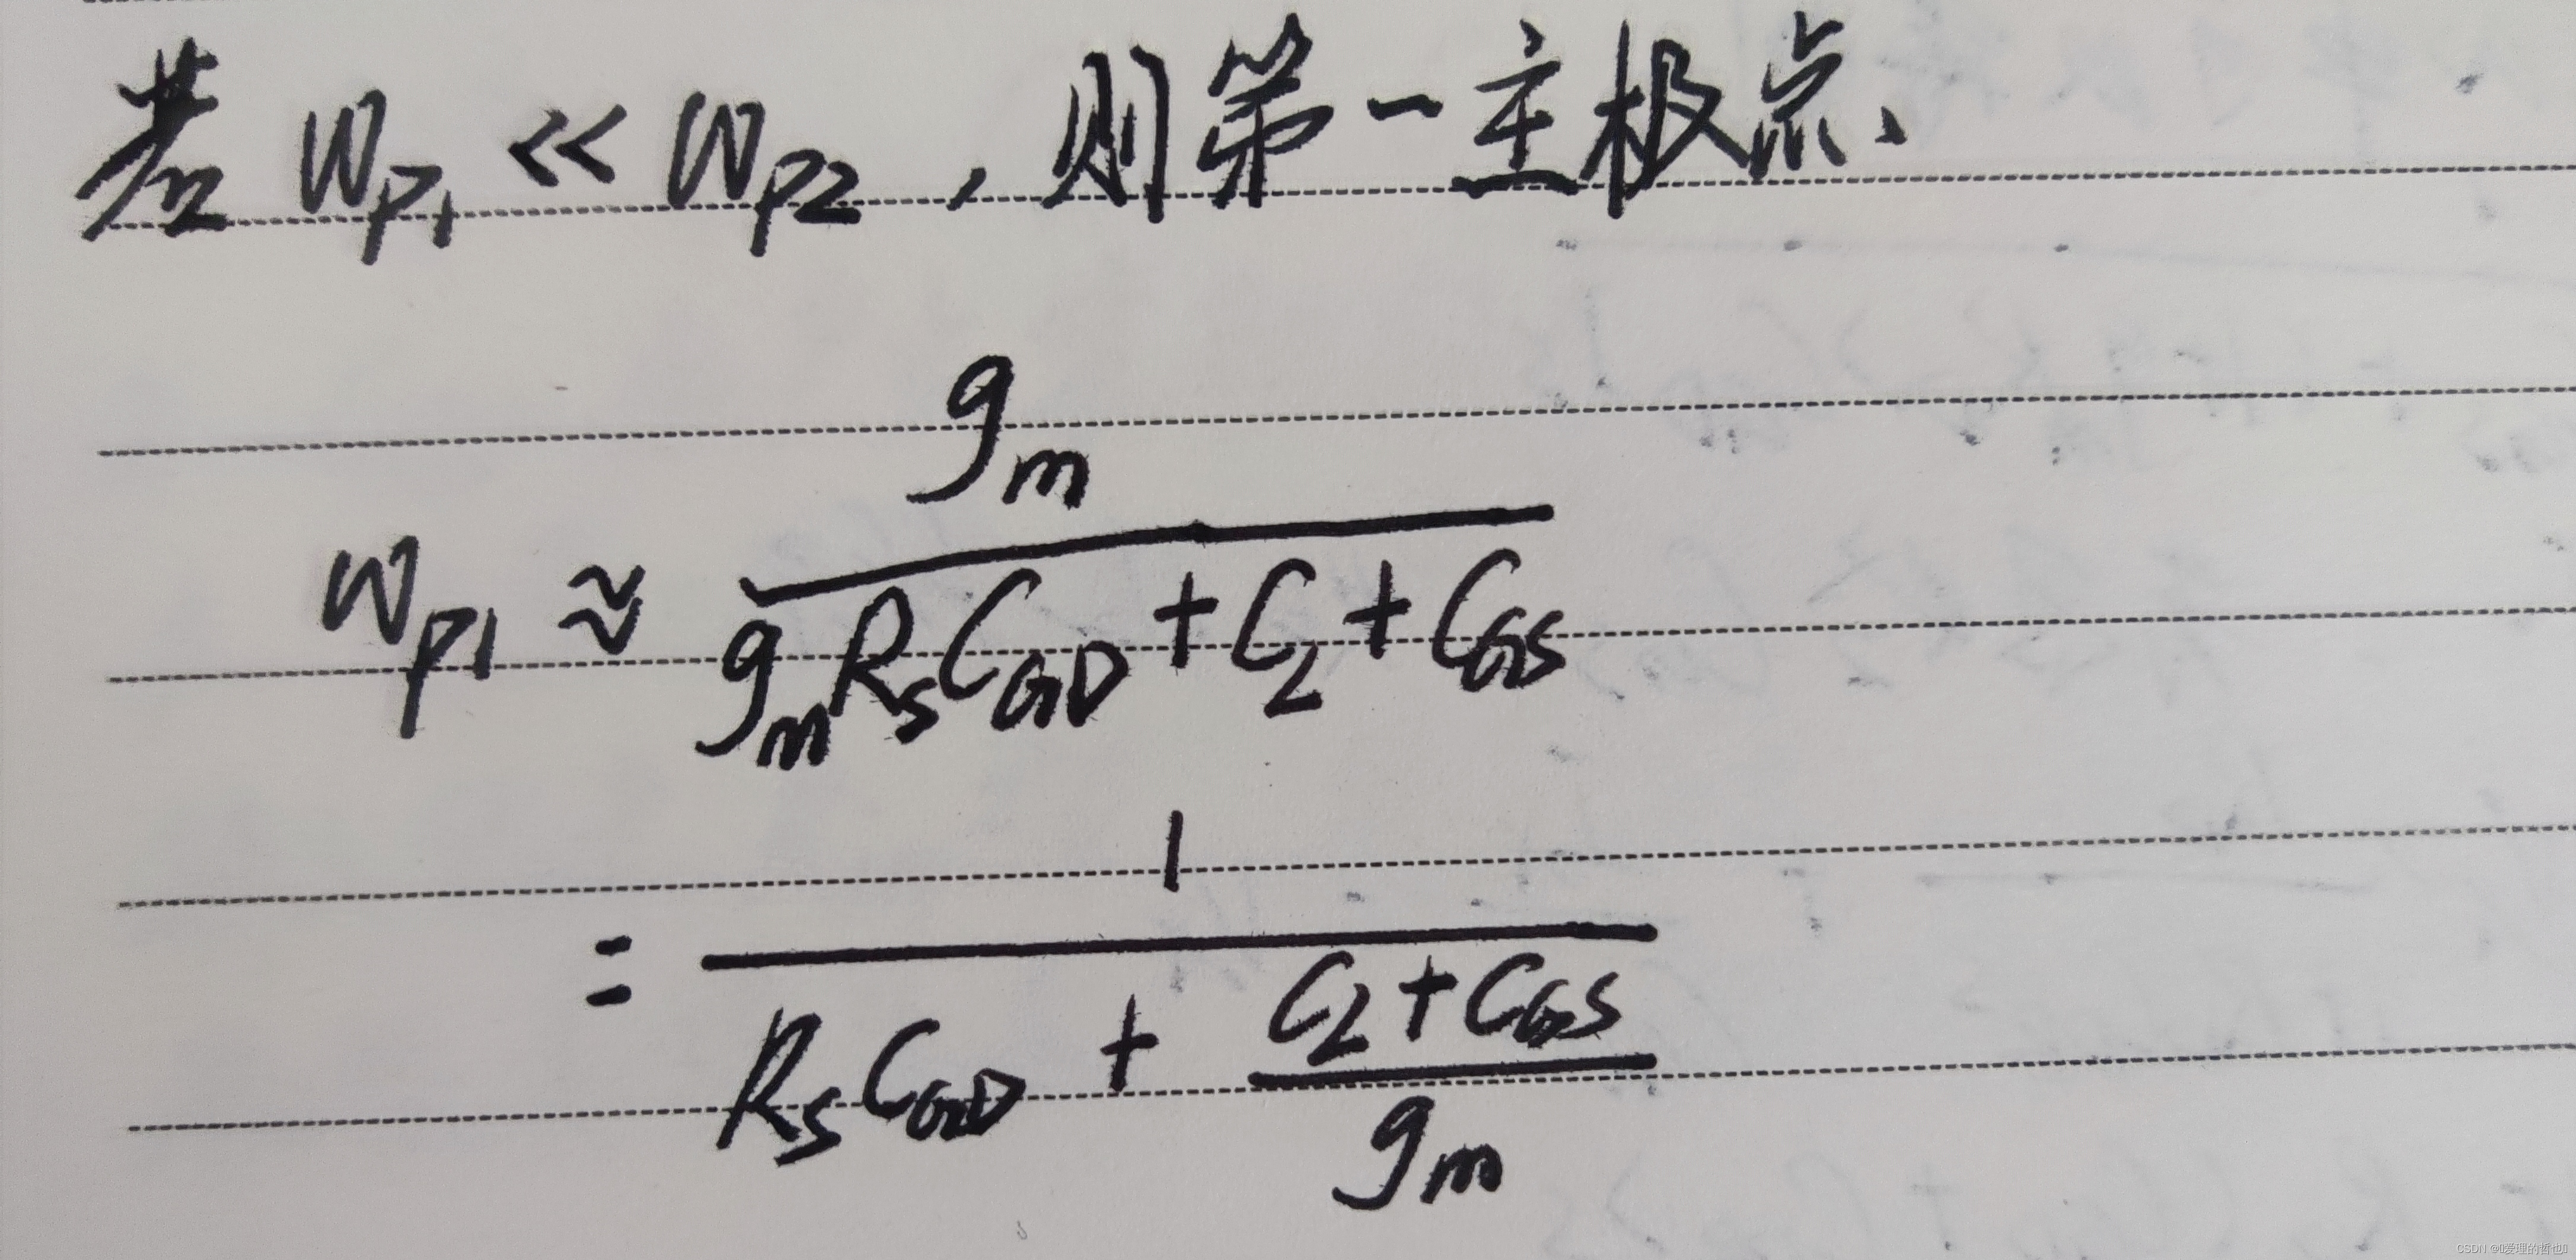 若 ωp1 << ωp2 , 则第一主极点、
ωp1 ≈ gm / (gm Rs CGD + CL + CGS)
= 1 / (Rs CGD + (CL + CGS) / gm)